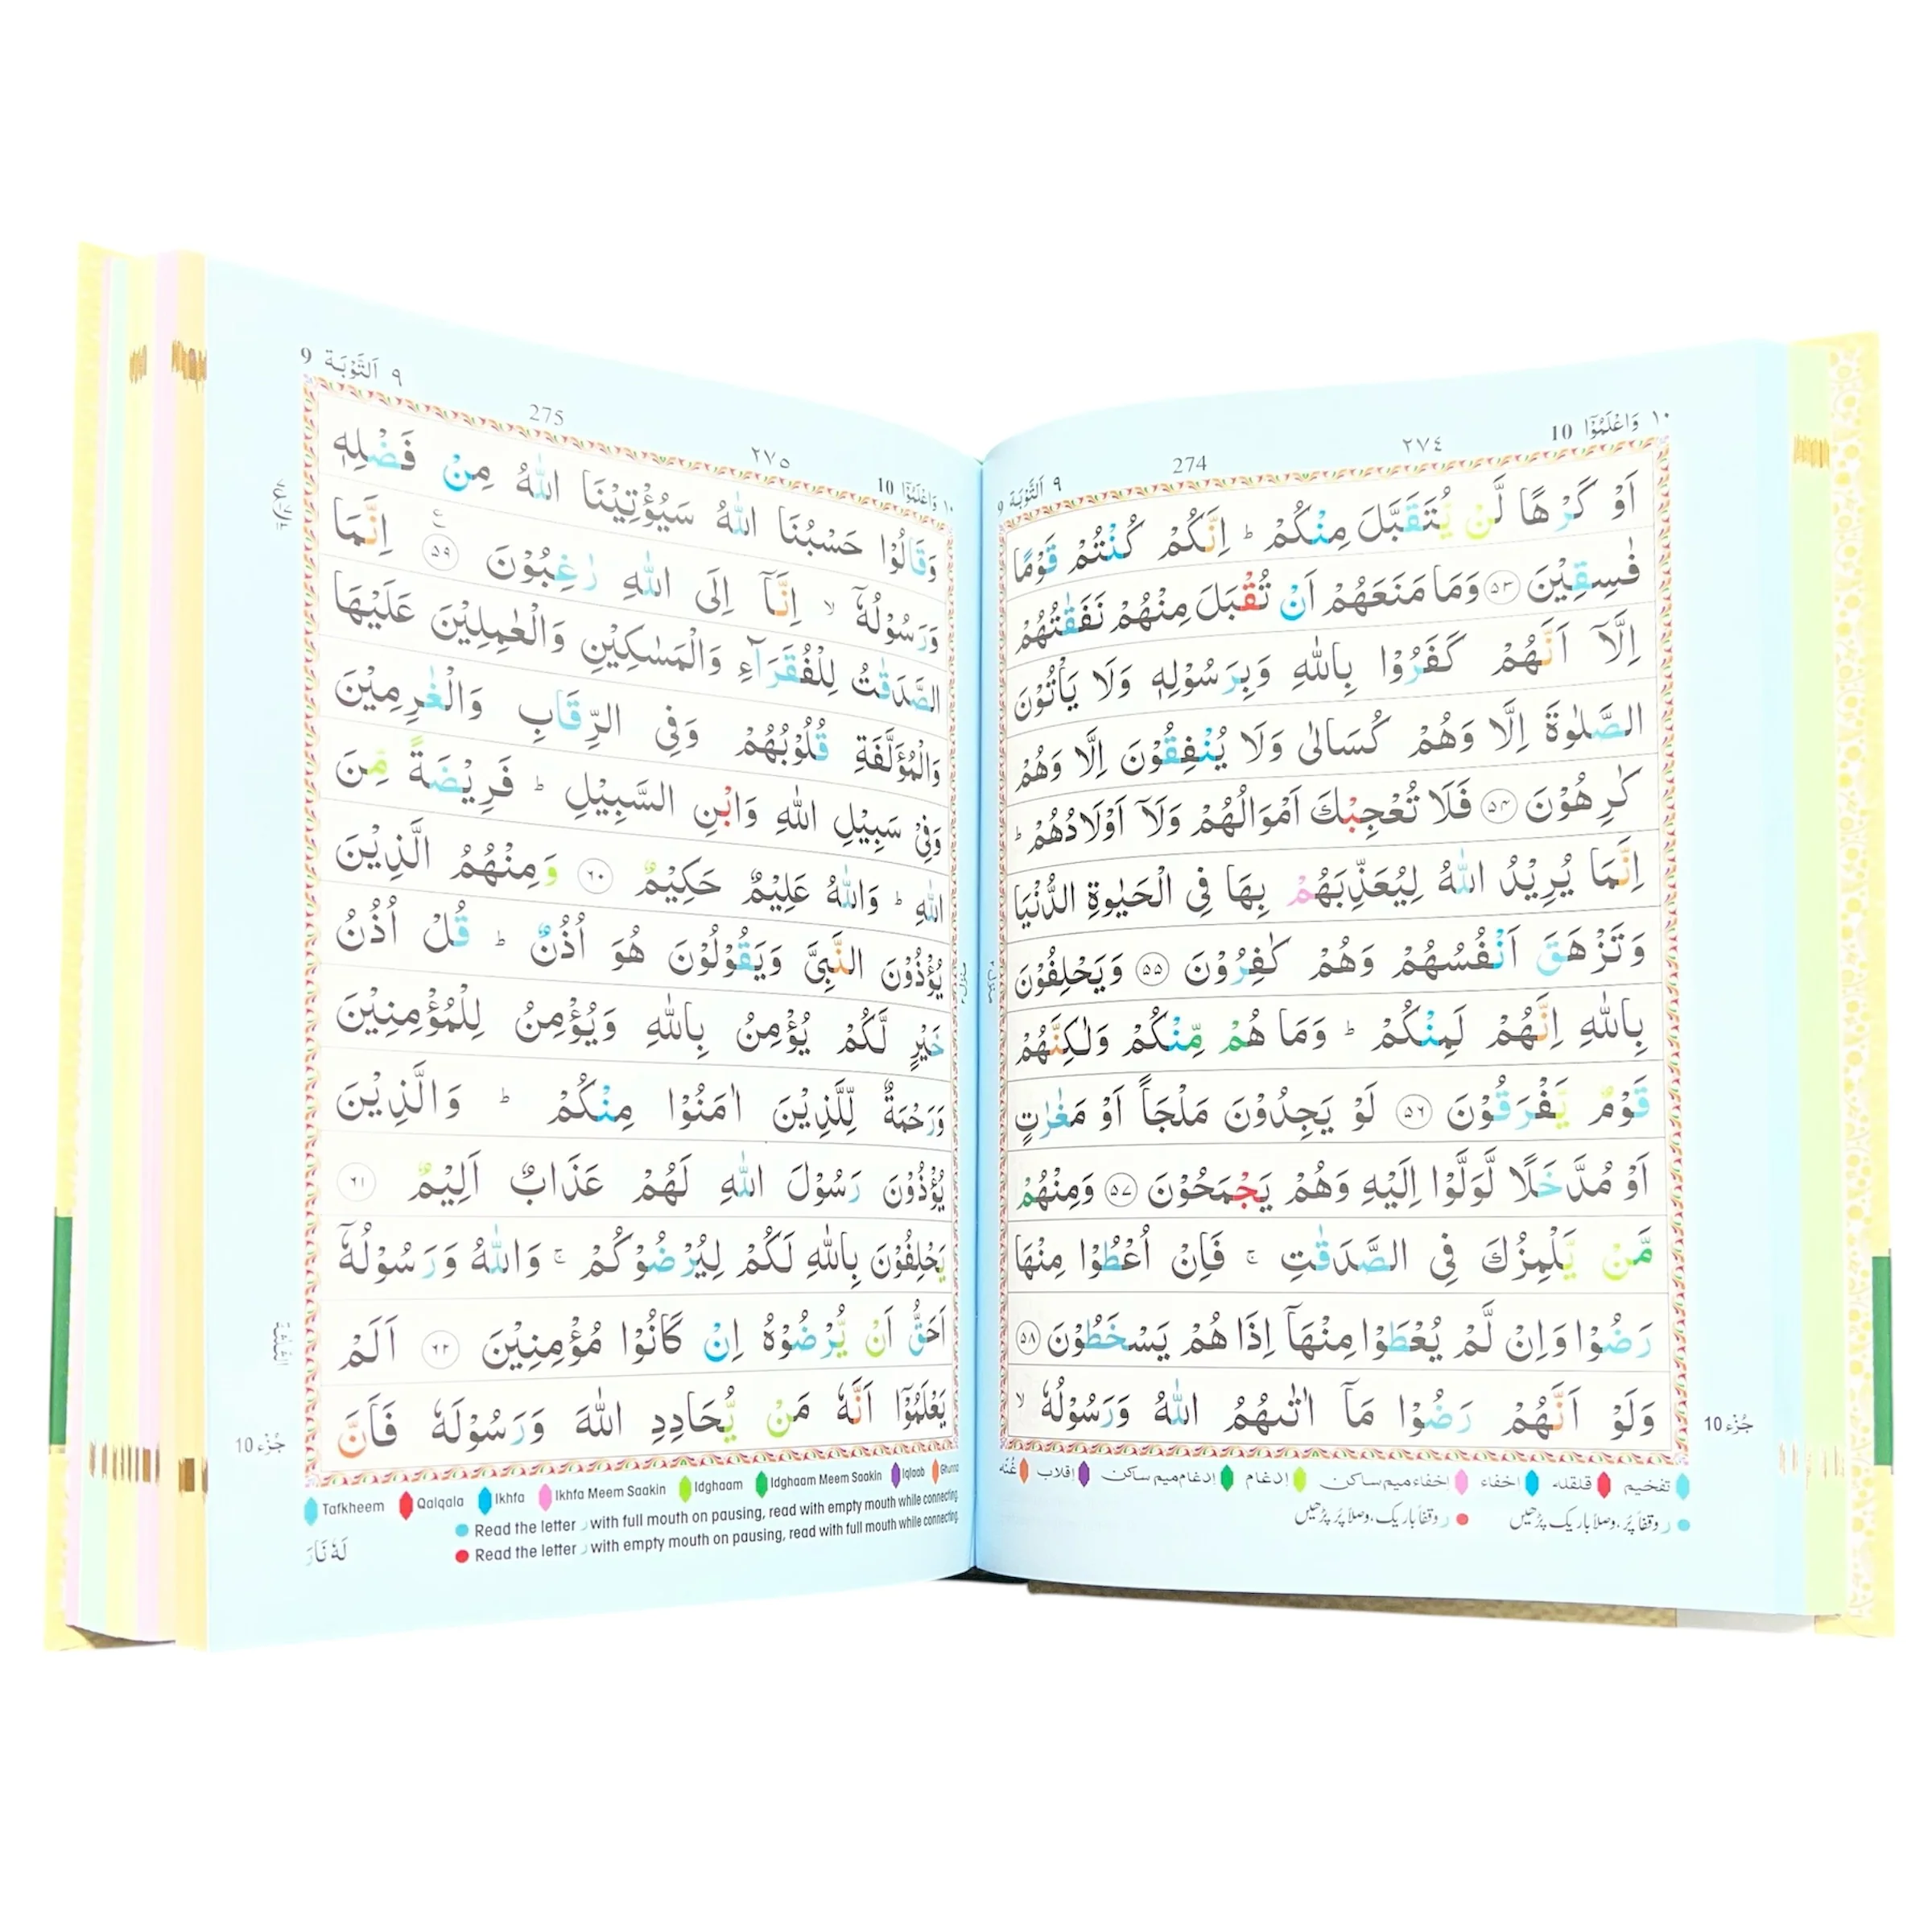 ١٠ وَاعْلَمُوْٓا 10
٢٧٤
274
٩ اَلتَّوْبَة 9
اَوْ كَرْهًا لَّنْ يُّتَقَبَّلَ مِنْكُمْ ؕ اِنَّكُمْ كُنْتُمْ قَوْمًا
فٰسِقِيْنَ ﴿۵۳﴾ وَمَا مَنَعَهُمْ اَنْ تُقْبَلَ مِنْهُمْ نَفَقٰتُهُمْ
اِلَّاۤ اَنَّهُمْ كَفَرُوْا بِاللّٰهِ وَبِرَسُوْلِهٖ وَلَا يَاْتُوْنَ
الصَّلٰوةَ اِلَّا وَهُمْ كُسَالٰى وَلَا يُنْفِقُوْنَ اِلَّا وَهُمْ
كٰرِهُوْنَ ﴿۵۴﴾ فَلَا تُعْجِبْكَ اَمْوَالُهُمْ وَلَاۤ اَوْلَادُهُمْ ؕ
اِنَّمَا يُرِيْدُ اللّٰهُ لِيُعَذِّبَهُمْ بِهَا فِى الْحَيٰوةِ الدُّنْيَا
وَتَزْهَقَ اَنْفُسُهُمْ وَهُمْ كٰفِرُوْنَ ﴿۵۵﴾ وَيَحْلِفُوْنَ
بِاللّٰهِ اِنَّهُمْ لَمِنْكُمْ ؕ وَمَا هُمْ مِّنْكُمْ وَلٰكِنَّهُمْ
قَوْمٌ يَّفْرَقُوْنَ ﴿۵۶﴾ لَوْ يَجِدُوْنَ مَلْجَاً اَوْ مَغٰرٰتٍ
اَوْ مُدَّخَلًا لَّوَلَّوْا اِلَيْهِ وَهُمْ يَجْمَحُوْنَ ﴿۵۷﴾ وَمِنْهُمْ
مَّنْ يَّلْمِزُكَ فِى الصَّدَقٰتِ ۚ فَاِنْ اُعْطُوْا مِنْهَا
رَضُوْا وَاِنْ لَّمْ يُعْطَوْا مِنْهَاۤ اِذَا هُمْ يَسْخَطُوْنَ ﴿۵۸﴾
وَلَوْ اَنَّهُمْ رَضُوْا مَاۤ اٰتٰىهُمُ اللّٰهُ وَرَسُوْلُهٗ ۙ
جُزْء 10
تفخيم قلقله اخفاء إخفاءميم ساكن إدغام إدغام ميم ساكن إقلاب غُنّه
ر وقفاً پُر، وصلاً باریک پڑھیں ر وقفاً باریک، وصلاً پُر پڑھیں
١٠ وَاعْلَمُوْٓا 10
٢٧٥
275
٩ اَلتَّوْبَة 9
وَقَالُوْا حَسْبُنَا اللّٰهُ سَيُؤْتِيْنَا اللّٰهُ مِنْ فَضْلِهٖ
وَرَسُوْلُهٗۤ ۙ اِنَّاۤ اِلَى اللّٰهِ رٰغِبُوْنَ ﴿۵۹﴾ ع اِنَّمَا
الصَّدَقٰتُ لِلْفُقَرَآءِ وَالْمَسٰكِيْنِ وَالْعٰمِلِيْنَ عَلَيْهَا
وَالْمُؤَلَّفَةِ قُلُوْبُهُمْ وَفِى الرِّقَابِ وَالْغٰرِمِيْنَ
وَفِىْ سَبِيْلِ اللّٰهِ وَابْنِ السَّبِيْلِ ؕ فَرِيْضَةً مِّنَ
اللّٰهِ ؕ وَاللّٰهُ عَلِيْمٌ حَكِيْمٌ ﴿۶۰﴾ وَمِنْهُمُ الَّذِيْنَ
يُؤْذُوْنَ النَّبِىَّ وَيَقُوْلُوْنَ هُوَ اُذُنٌ ؕ قُلْ اُذُنُ
خَيْرٍ لَّكُمْ يُؤْمِنُ بِاللّٰهِ وَيُؤْمِنُ لِلْمُؤْمِنِيْنَ
وَرَحْمَةٌ لِّلَّذِيْنَ اٰمَنُوْا مِنْكُمْ ؕ وَالَّذِيْنَ
يُؤْذُوْنَ رَسُوْلَ اللّٰهِ لَهُمْ عَذَابٌ اَلِيْمٌ ﴿۶۱﴾
يَحْلِفُوْنَ بِاللّٰهِ لَكُمْ لِيُرْضُوْكُمْ ۚ وَاللّٰهُ وَرَسُوْلُهٗۤ
اَحَقُّ اَنْ يُّرْضُوْهُ اِنْ كَانُوْا مُؤْمِنِيْنَ ﴿۶۲﴾ اَلَمْ
يَعْلَمُوْۤا اَنَّهٗ مَنْ يُّحَادِدِ اللّٰهَ وَرَسُوْلَهٗ فَاَنَّ
جُزْء 10
Tafkheem Qalqala Ikhfa Ikhfa Meem Saakin Idghaam Idghaam Meem Saakin Iqlaab Ghunna
Read the letter ر with full mouth on pausing, read with empty mouth while connecting.
Read the letter ر with empty mouth on pausing, read with full mouth while connecting.
لَهٗ نَارَ